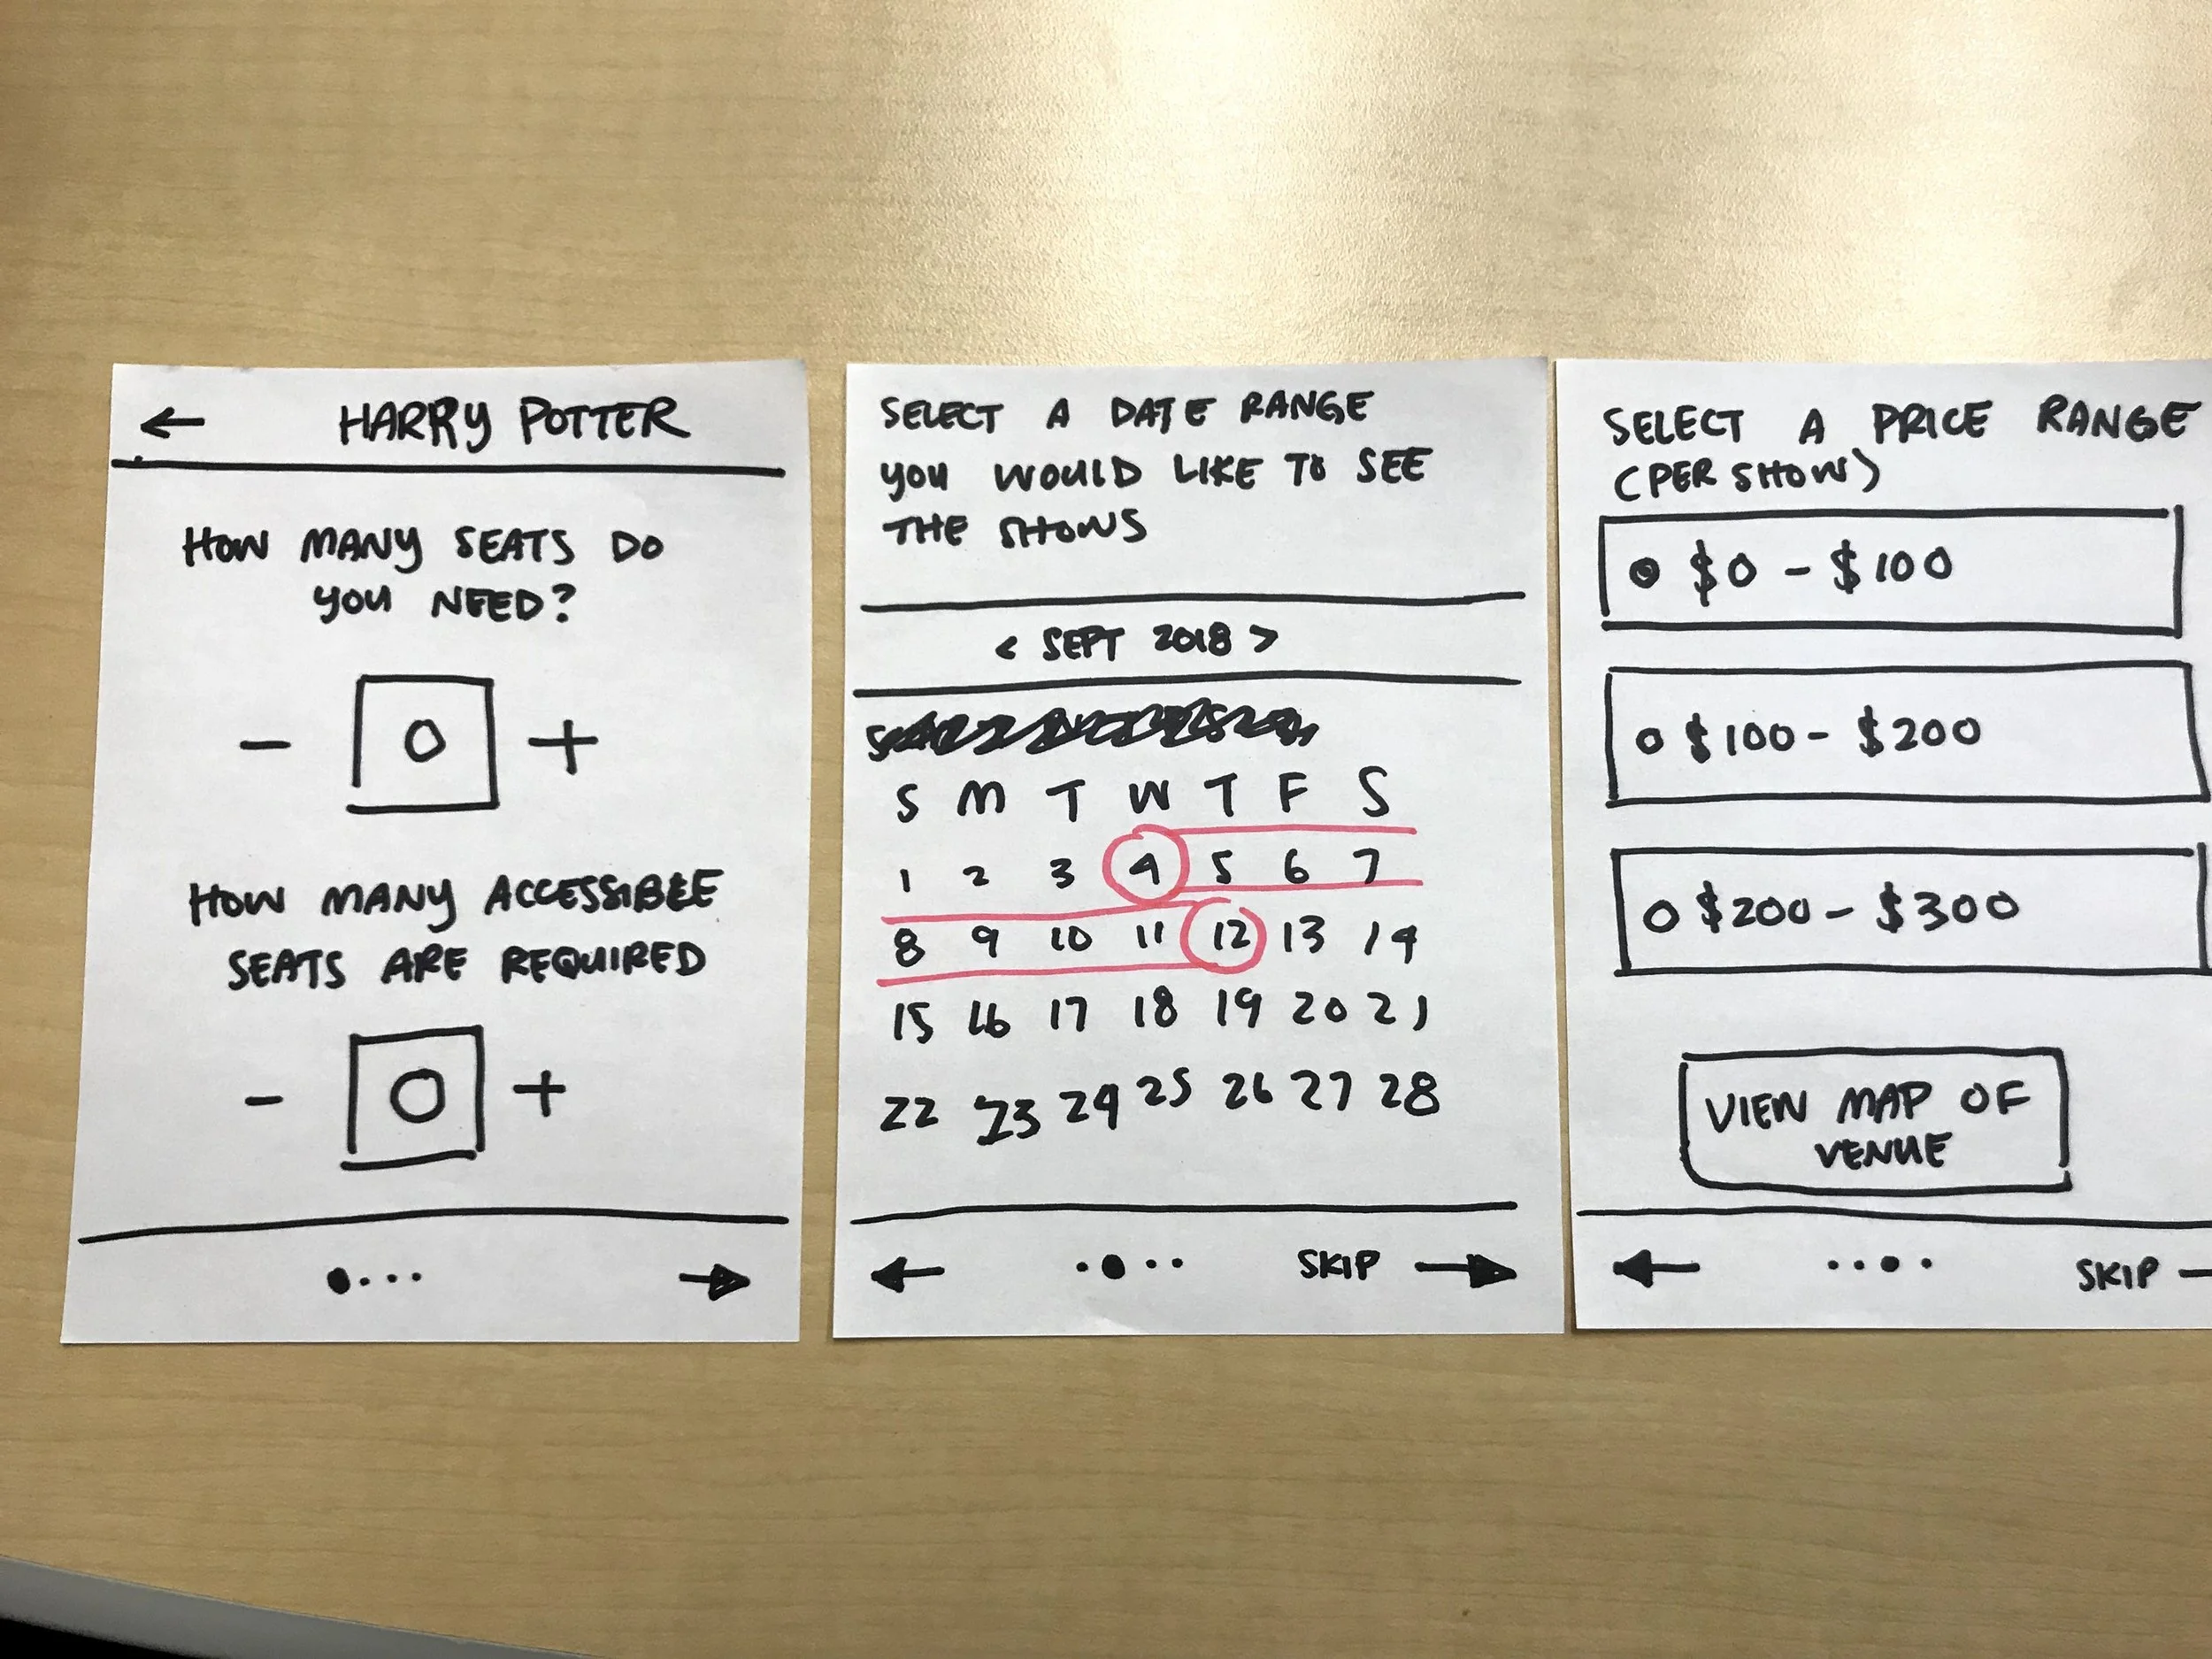 ← HARRY POTTER
HOW MANY SEATS DO
YOU NEED?
- 0 +
HOW MANY ACCESSIBLE
SEATS ARE REQUIRED
- 0 +
SELECT A DATE RANGE
YOU WOULD LIKE TO SEE
THE SHOWS
< SEPT 2018 >
S M T W T F S
1 2 3 4 5 6 7
8 9 10 11 12 13 14
15 16 17 18 19 20 21
22 23 24 25 26 27 28
← SKIP →
SELECT A PRICE RANGE
(PER SHOW)
$0 - $100
$100 - $200
$200 - $300
VIEW MAP OF
VENUE
← SKIP